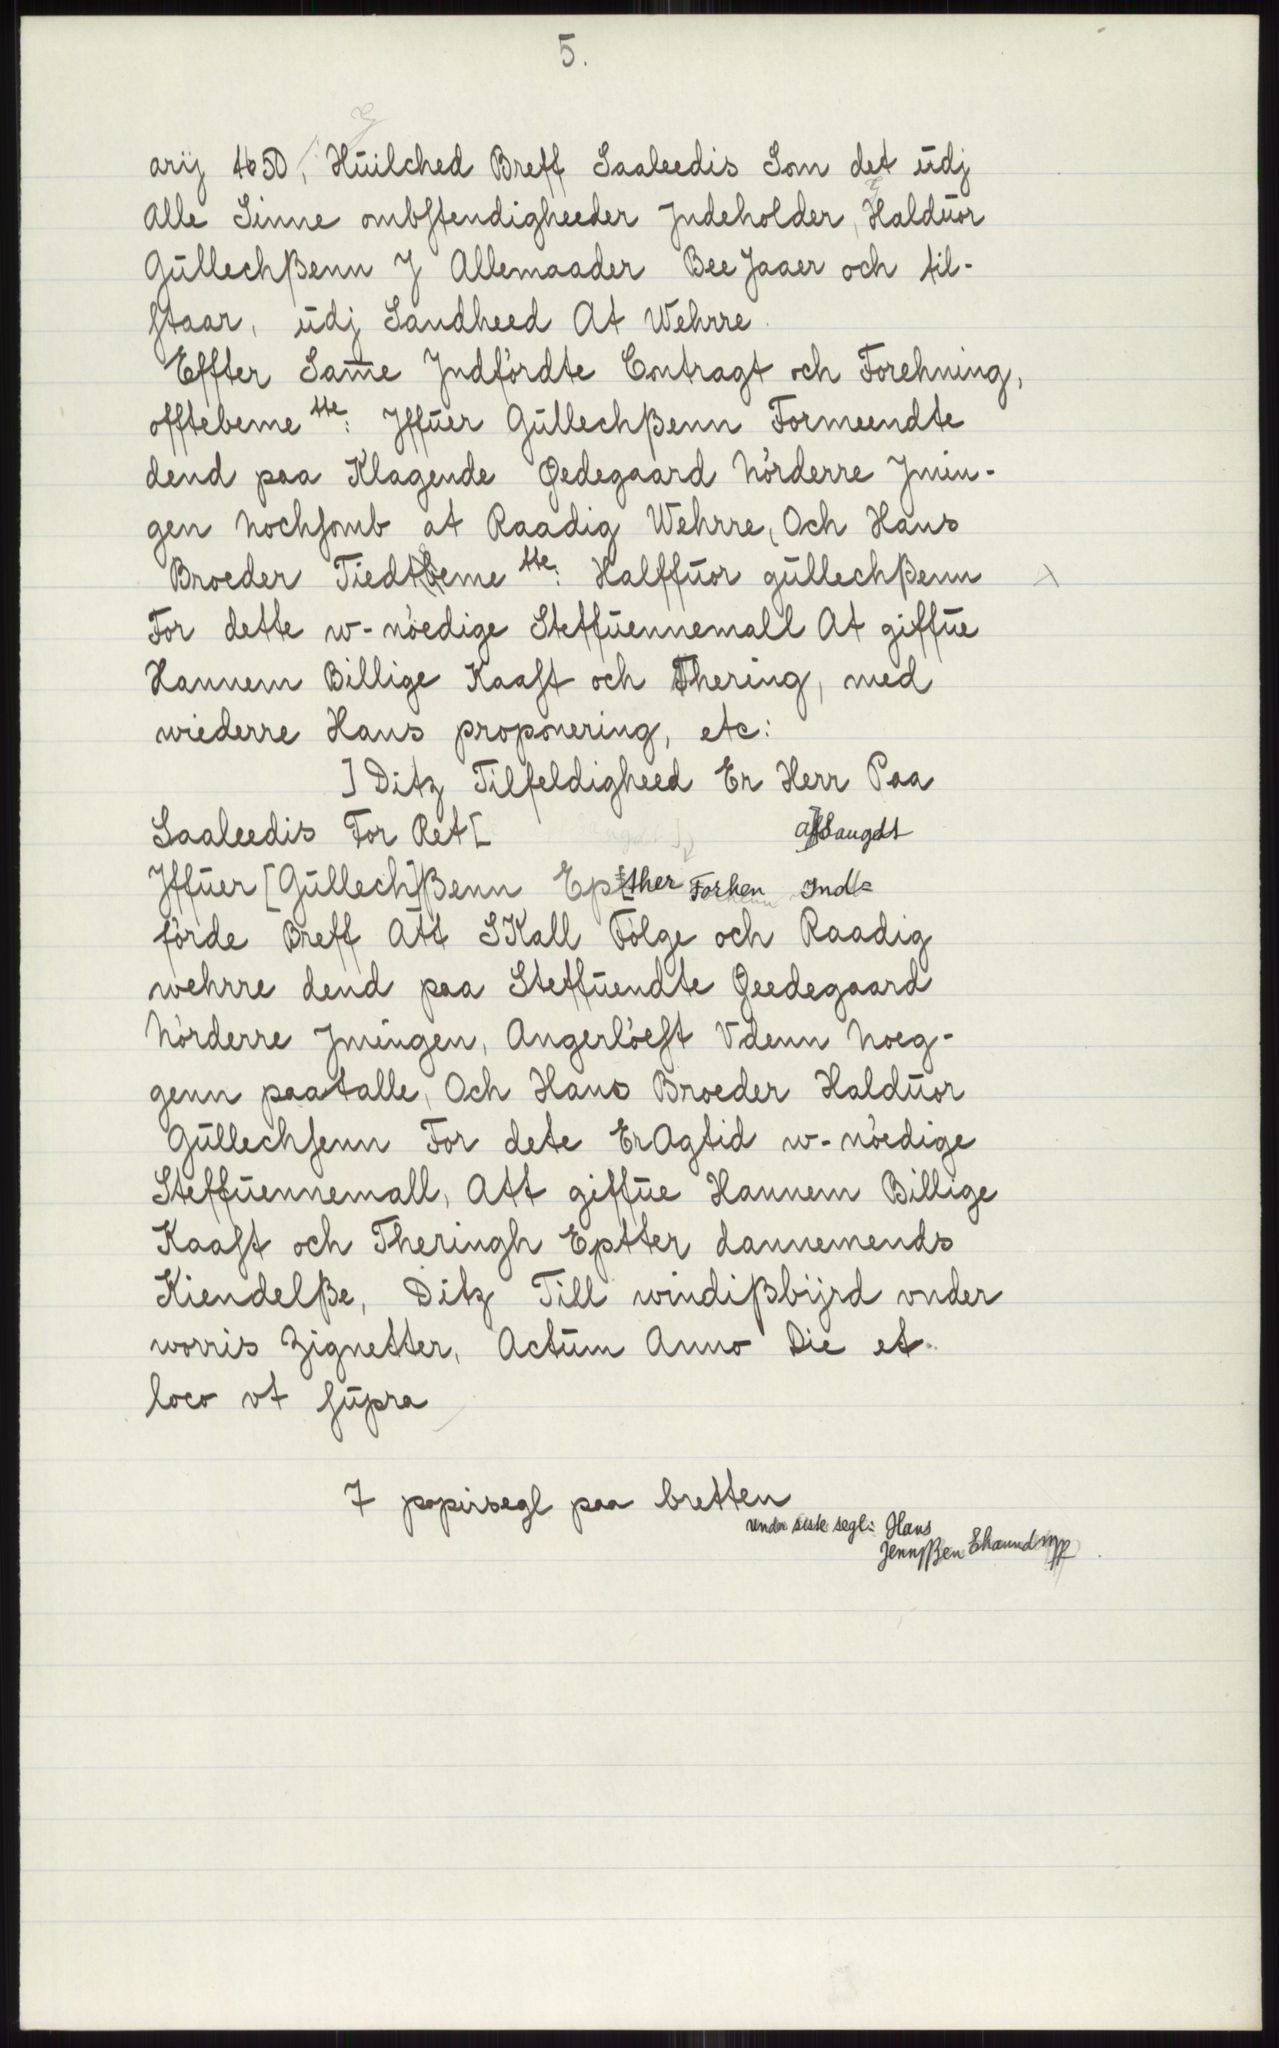 5.
arij 1650, Hüilched Breff Saaleedis Som det üdj
Alle Sinne ombstendigheeder Jndeholder, Haldüor
Güllechßenn J Allemaader BeeJaaer och til-
staar, üdj Sandheed At Wehrre
Effter Sam̅e Jndfördte Contragt och Forehning,
offtebeme tte: Jffüer Güllechßenn Formeendte
dend paa Klagende Ødegaard Nörderre Jmin-
gen Nochsomb at Raadig Wehrre, Och Hans
Broeder Tiedtbeme tte: Halffüor güllechßenn
For dette w-nöedige Steffüennemall At giffüe
Hannem Billige Kaast och Thering, med
wiederre Hans proponering, etc:
] Ditz Tilfeldigheed Er Herr Paa
Saaleedis For Ret [ affsaugdt
Jffüer [Güllech]ßenn Epther Forhen Ind-
förde Breff Att SKall Fölge och Raadig
wehrre dend paa Steffüendte Øeedegaard
Nörderre Jmingen, Angerlöest Vdenn Noeg-
genn paatalle, Och Hans Broeder Haldüor
Güllechsenn For dete ErAgtid w-nöedige
Steffüennemall, Att giffüe Hannem Billige
Kaast och Theringh Eptter dannemends
Kiendelße, Ditz Till windißbÿrd vnder
worris Zignetter, Actüm Anno Die et
loco vt süpra
7 papirsegl paa bretten
under siste segl: Hans
Jennßen